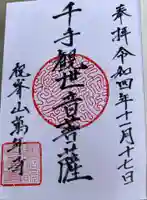 奉拝令和四年十一月廿七日
千手観世音菩薩
観峯山萬年寺